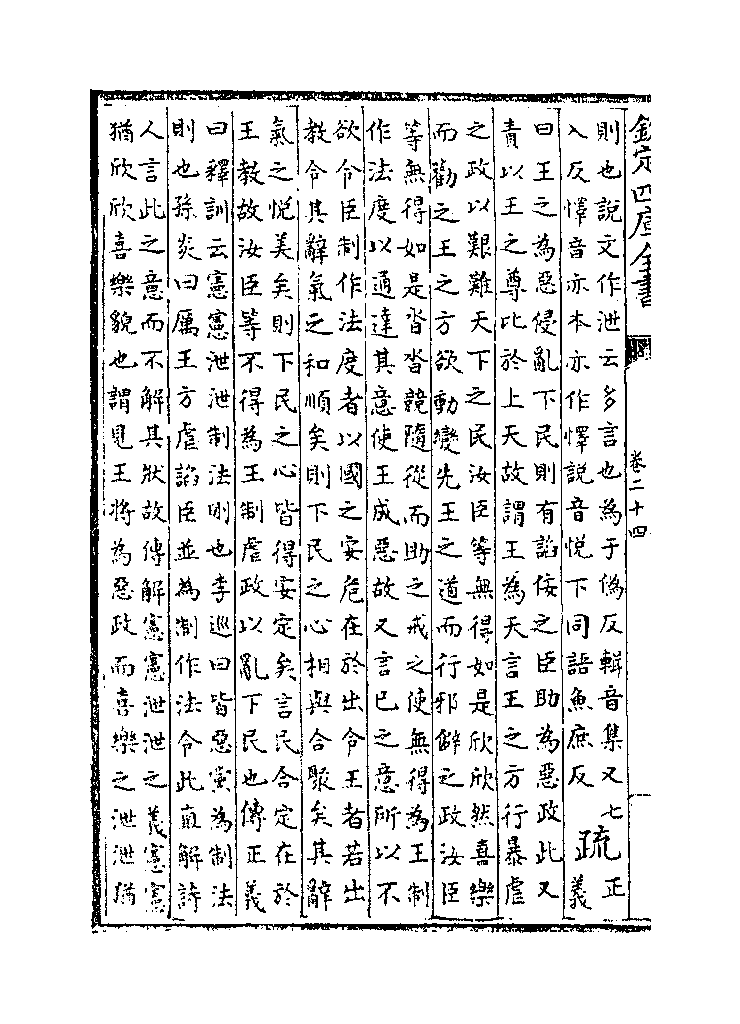 欽定四庫全書
卷二十四
則也說文作泄云多言也為于偽反輯音集又七
入反懌音亦本亦作懌說音悅下同語魚庶反
疏
正
義
曰王之為惡侵亂下民則有諂佞之臣助為惡政此又
責以王之尊比於上天故謂王為天言王之方行暴虐
之政以艱難天下之民汝臣等無得如是欣欣然喜樂
而勸之王之方欲動變先王之道而行邪僻之政汝臣
等無得如是沓沓競隨從而助之戒之使無得為王制
作法度以通達其意使王成惡故又言已之意所以不
欲令臣制作法度者以國之安危在於出令王者若出
教令其辭氣之和順矣則下民之心相與合聚矣其辭
氣之悅美矣則下民之心皆得安定矣言民合定在於
王教故汝臣等不得為王制虐政以亂下民也傳正義
曰釋訓云憲憲泄泄制法則也李巡曰皆惡黨為制法
則也孫炎曰厲王方虐諂臣並為制作法令此直解詩
人言此之意而不解其狀故傳解憲憲泄泄之義憲憲
猶欣欣喜樂貌也謂見王將為惡政而喜樂之泄泄猶